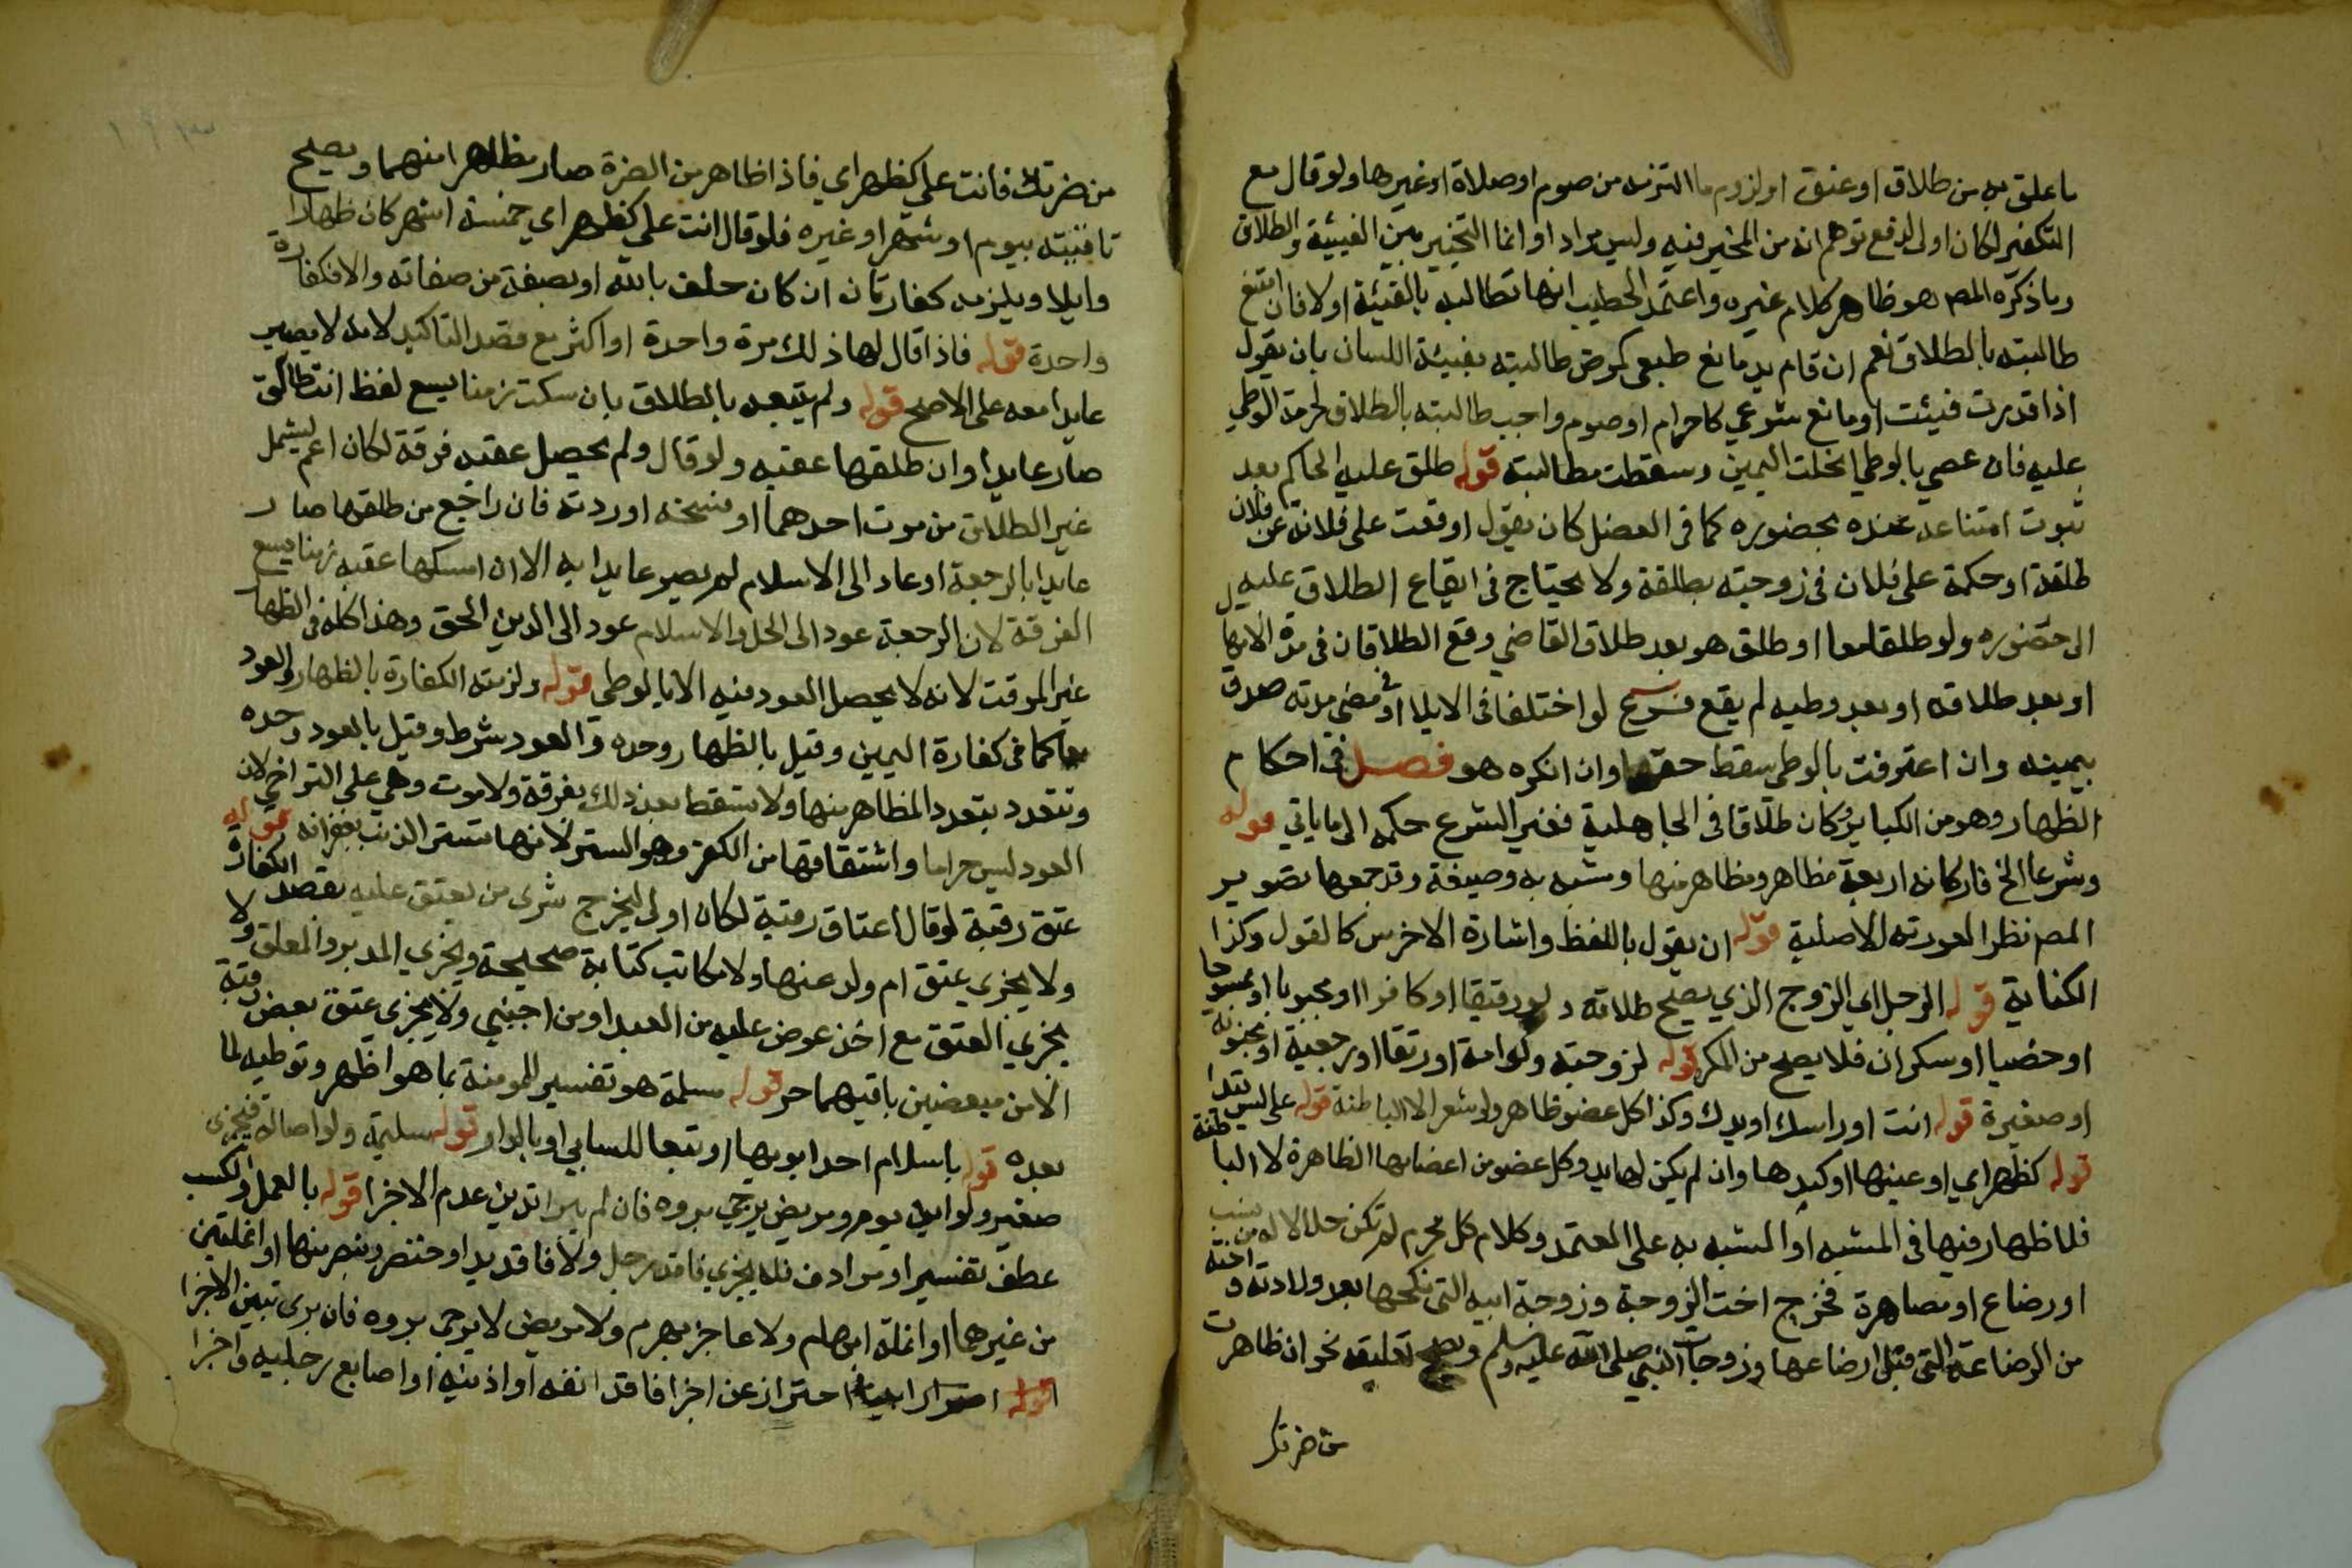 ما علق به من طلاق او عتق او لزوم ما التزمه من صوم او صلاة او غيرها ولو قال مع
التكفير لكان اولى لدفع توهم انه من المخير فيه وليس مرادا وانما التخيير بين الفيئة والطلاق
وما ذكره المص هو ظاهر كلام غيره واعتمد الخطيب انها تطالبه بالفيئة اولا فان امتنع
طالبته بالطلاق نعم ان قام به مانع طبعي كمرض طالبته بفيئة اللسان بان يقول
اذا قدرت فيئت او مانع شرعي كاحرام او صوم واجب طالبته بالطلاق لحرمة الوطي
عليه فان عصي بالوطي انحلت اليمين وسقطت مطالبته قوله طلق عليه الحاكم بعد
ثبوت امتناعه عنده بحضوره كما في العضل كان يقول اوقعت على فلانة عن فلان
طلقة او حكمة على فلان في زوجته بطلقة ولا يحتاج في ايقاع الطلاق عليه
الى حضوره ولو طلقا معا او طلق هو بعد طلاق القاضي وقع الطلاقان في مدة الايلا
او بعد طلاقه او بعد وطيه لم يقع فرع لو اختلفا في الايلا او في مضي مدته صدق
بيمينه وان اعترفت بالوطي سقط حقها وان انكره هو فصل في احكام
الظهار وهو من الكباير وكان طلاقا في الجاهلية فغير الشرع حكمه الى ما ياتي قوله
وشرعا الخ فاركانه اربعة مظاهر ومظاهر منها ومشبه به وصيغة وقد جمعها تصوير
المص نظرا لصورته الاصلية قوله ان يقول باللفظ واشارة الاخرس كالقول وكذا
الكناية قوله الرجل اي الزوج الذي يصح طلاقه ولو رقيقا او كافرا او مجبوبا او ممسوحا
او خصيا او سكران فلا يصح من المكره قوله لزوجته ولو امة او رتقا او رجعية او مجنونة
او صغيرة قوله انت او راسك او يدك وكذا كل عضو ظاهر ولو شعر الا الباطنة قوله على ليس قيدا
قوله كظهر امي او عينها او كبدها وان لم يكن لها يد وكل عضو من اعضايها الظاهرة لا الباطنة
فلا ظهار فيها في المشبه او المشبه به على المعتمد وكلام كل محرم لم تكن حلالا له من نسب
او رضاع او مصاهرة فخرج اخت الزوجة وزوجة ابيه التي نكحها بعد ولادته واخته
من الرضاعة التي قبل ارضاعها وزوجات النبي صلى الله عليه وسلم ويصح تعليقه نحو ان ظاهرت
من ضرتك
من ضرتك فانت علي كظهر امي فاذا ظاهر من الضرة صار مظاهرا منهما ويصح
تاقيته بيوم او شهر او غيره فلو قال انت علي كظهر امي خمسة اشهر كان ظهارا
وايلا ويلزمه كفارتان ان كان حلف بالله او بصفة من صفاته والا فكفارة
واحدة قوله فاذا قال لها ذلك مرة واحدة او اكثر مع قصد التاكيد لانه لا يصير
عايدا معه على الاصح قوله ولم يتبعه بالطلاق بان سكت زمنا يسع لفظ انت طالق
صار عايدا وان طلقها عقبه ولو قال ولم يحصل عقبه فرقة لكان اعم ليشمل
غير الطلاق من موت احدهما او فسخه او ردته فان راجع من طلقها صار
عايدا بالرجعة او عاد الى الاسلام لم يصير عايدا به الا ان امسكها عقبه زمنا يسع
الفرقة لان الرجعة عود الى الحل والاسلام عود الى الدين الحق وهذا كله في الظهار
غير الموقت لانه لا يحصل العود فيه الا بالوطي قوله ولزمته الكفارة بالظهار والعود
معا كما في كفارة اليمين وقيل بالظهار وحده والعود شرط وقيل بالعود وحده
وتتعدد بتعدد المظاهر منها ولا تسقط بعد ذلك بفرقة ولا موت وهي على التراخي لان
العود ليس حراما واشتقاقها من الكفر وهو الستر لانها تستر الذنب بغفرانه قوله
عتق رقبة لو قال اعتاق رقبة لكان اولى ليخرج شرى من يعتق عليه بقصد الكفارة
ولا يجزى عتق ام ولد عنها ولا مكاتب كتابة صحيحة ويجزي المدبر والمعلق ولا
يجزي العتق مع اخذ عوض عليه من العبد او من اجنبي ولا يجزى عتق بعض رقبة
الا من مبعضين باقيهما حر قوله مسلمة هو تفسير للمومنة بما هو اظهر وتوطيه لما
بعده قوله باسلام احد ابويها او تبعا للسابي او بالدار قوله سليمة ولو اصالة فيجزى
صغير ولو ابن يوم ومريض يرجي بروه فان لم يبرا تبين عدم الاجزا قوله بالعمل والكسب
عطف تفسير او مرادف فلا يجزي فاقد رجل ولا فاقد يد او خنصر وبنصر منها او اغلتين
من غيرهما او انملة ابهام ولا عاجز بهرم ولا مريض لا يرجى بروه فان برى تبين الاجزا
قوله احتراز عن اجزا فاقد انفه او اذنيه او اصابع رجليه واجزا